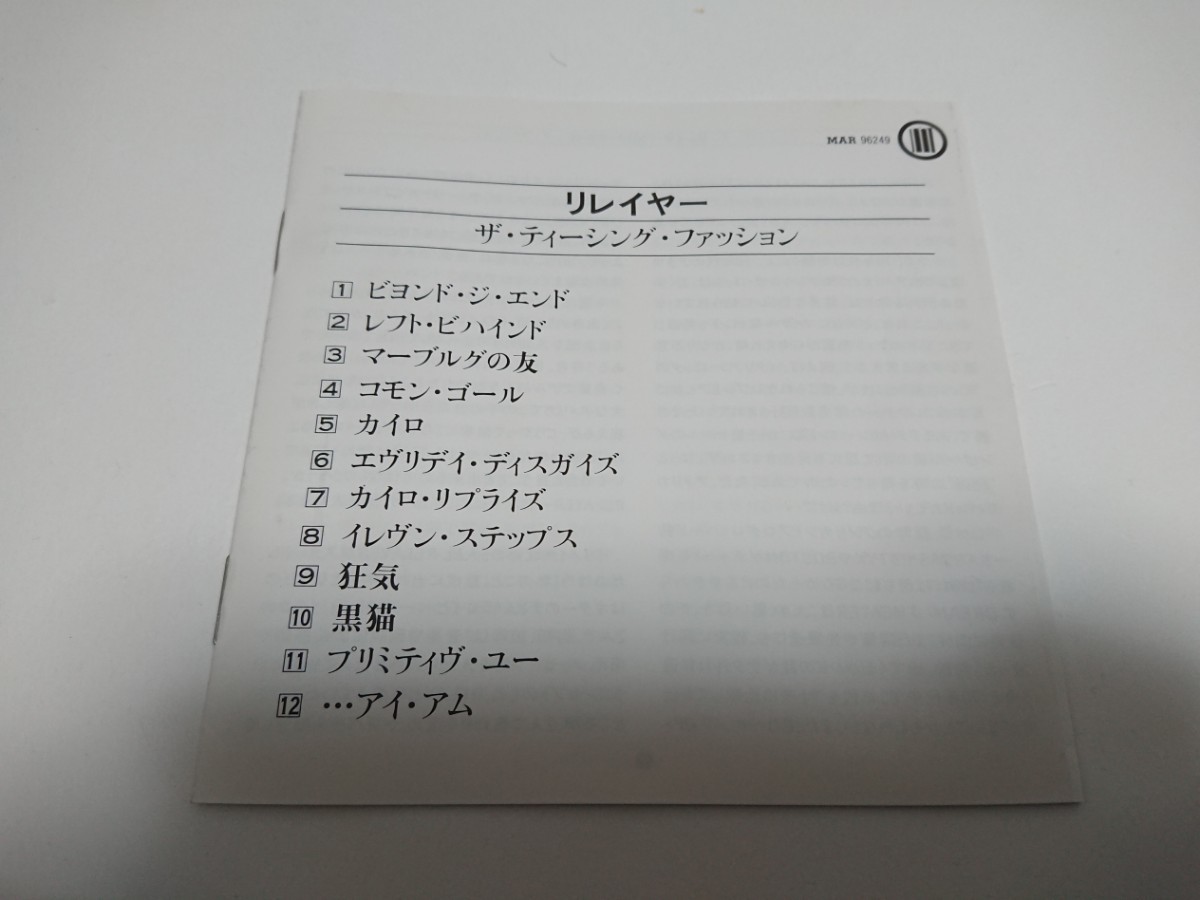 MAR 96249
リレイヤー
ザ・ティーシング・ファッション
1 ビヨンド・ジ・エンド
2 レフト・ビハインド
3 マーブルグの友
4 コモン・ゴール
5 カイロ
6 エヴリデイ・ディスガイズ
7 カイロ・リプライズ
8 イレヴン・ステップス
9 狂気
10 黒猫
11 プリミティヴ・ユー
12 …アイ・アム